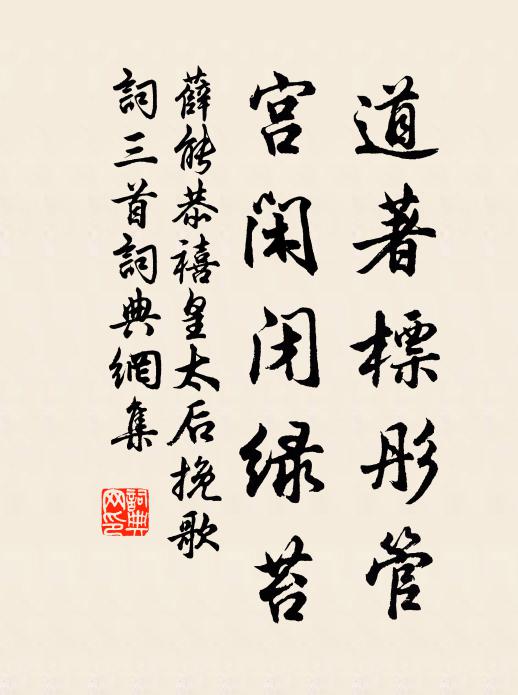 道著標彤管
宫闲閉绿苔
薛能恭禧皇太后挽歌
詞三首詞典網集
詞典网印